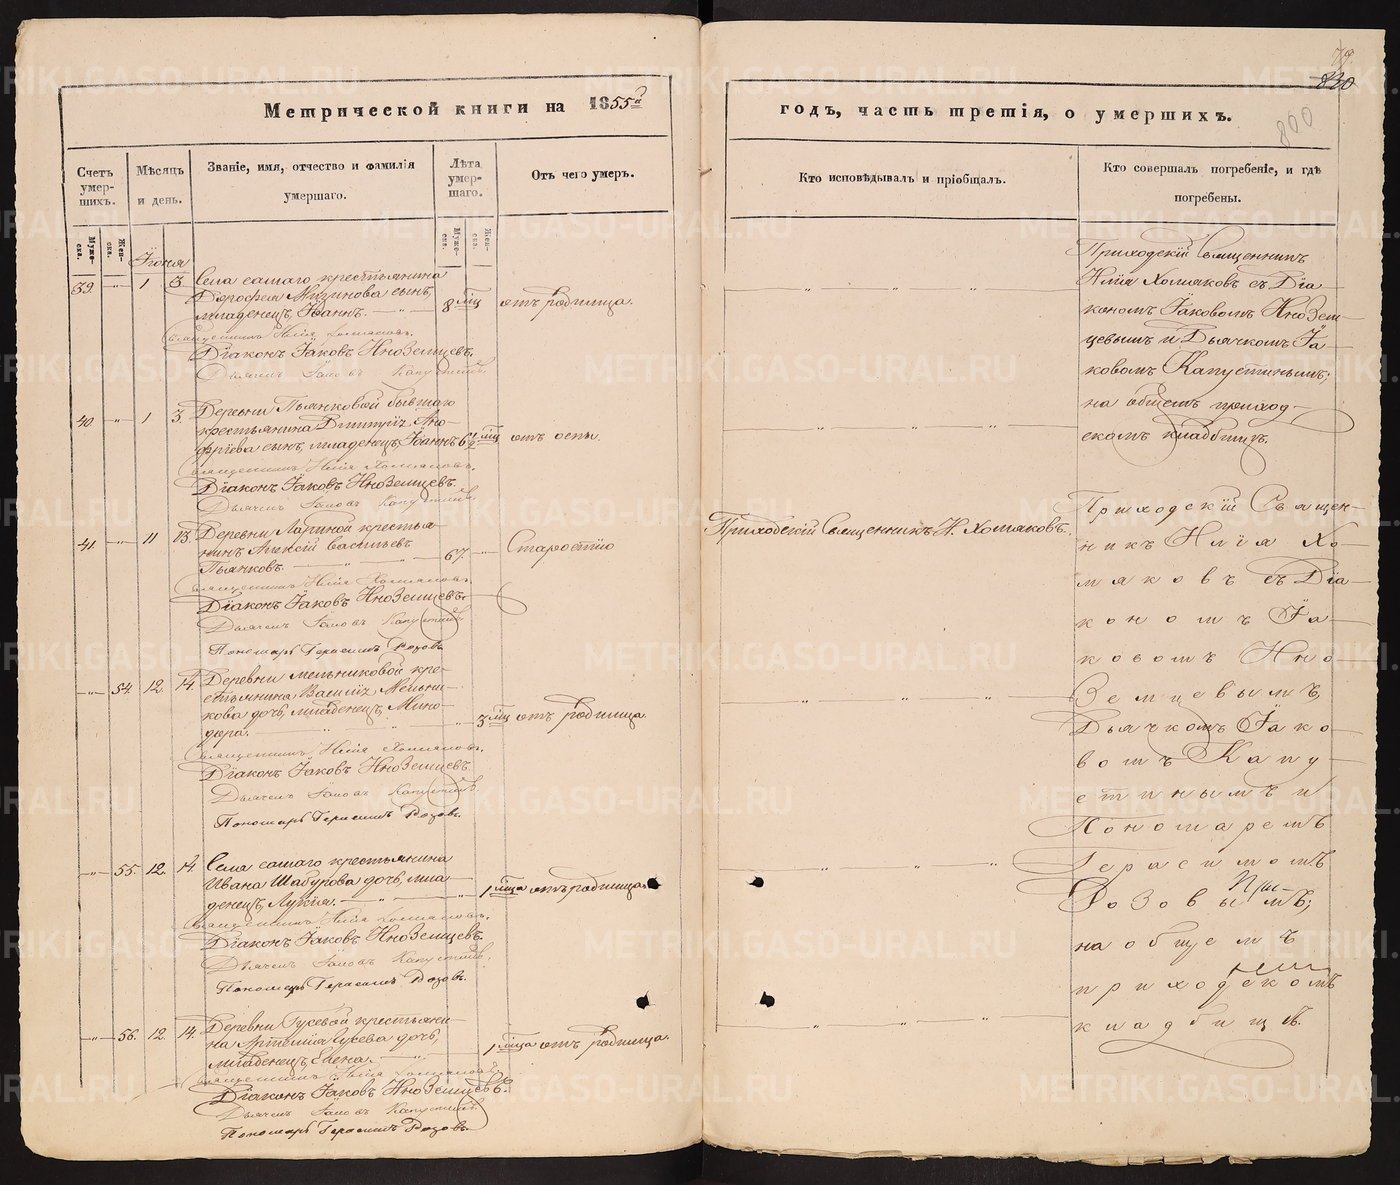 79
830
800
Метрической книги на 1855й
годъ, часть третія, о умершихъ.
Счетъ умер-шихъ.
Муже-ска.
Жен-ска.
Мѣсяцъ и день.
Званіе, имя, отчество и фамилія умершаго.
Лѣта умер-шаго.
Муже-ска.
Жен-ска.
Отъ чего умеръ.
Кто исповѣдывалъ и пріобщалъ.
Кто совершалъ погребеніе, и гдѣ погребены.
Іюня
39. 1 3. Села самаго крестьянина
Дорофея сынъ,
младенецъ Іоаннъ. 8 мц отъ родимца.
Священникъ Илія Хомяковъ.
Діаконъ Іаковъ Иноземцевъ.
Дьячекъ Іаковъ Капустинъ.
40. 1 3. Деревни Пьянковой бывшаго
крестьянина Димитрія Ано-
фріева сынъ, младенецъ Іоаннъ 6½ мц отъ оспы.
Священникъ Илія Хомяковъ.
Діаконъ Іаковъ Иноземцевъ.
Дьячекъ Іаковъ Капустинъ.
41. 11 13. Деревни Лариной крестья-
нинъ Алексій Васильевъ
Пьянковъ. 67. Старостію
Священникъ Илія Хомяковъ.
Діаконъ Іаковъ Иноземцевъ.
Дьячекъ Іаковъ Капустинъ.
Пономарь Герасимъ Розовъ.
54. 12. 14. Деревни Мельниковой кре-
стьянина Василія Мельни-
кова дочь, младенецъ Мино-
дора. 3 мц отъ родимца.
Священникъ Илія Хомяковъ.
Діаконъ Іаковъ Иноземцевъ.
Дьячекъ Іаковъ Капустинъ.
Пономарь Герасимъ Розовъ.
55. 12. 14. Села самаго крестьянина
Ивана Шабурова дочь, мла-
денецъ Лукія. 1 мца отъ родимца.
Священникъ Илія Хомяковъ.
Діаконъ Іаковъ Иноземцевъ.
Дьячекъ Іаковъ Капустинъ.
Пономарь Герасимъ Розовъ.
56. 12. 14. Деревни Гусевой крестьяни-
на Артемія Гусева дочь,
младенецъ Елена. 1 мца отъ родимца.
Священникъ Илія Хомяковъ.
Діаконъ Іаковъ Иноземцевъ.
Дьячекъ Іаковъ Капустинъ.
Пономарь Герасимъ Розовъ.
Приходскій Священникъ И. Хомяковъ.
Приходскій Священникъ
Илія Хомяковъ съ Діа-
кономъ Іаковомъ Инозем-
цевымъ и Дьячкомъ Іа-
ковомъ Капустинымъ;
на общемъ приход-
скомъ кладбищѣ.
Приходскій Священ-
никъ Илія Хо-
мяковъ съ Діа-
кономъ Іа-
ковомъ Ино-
земцевымъ,
Дьячкомъ Іако-
вомъ Капу-
стинымъ и
Пономаремъ
Герасимомъ
Розовымъ;
на общемъ
приходскомъ
кладбищѣ.
METRIKI.GASO-URAL.RU